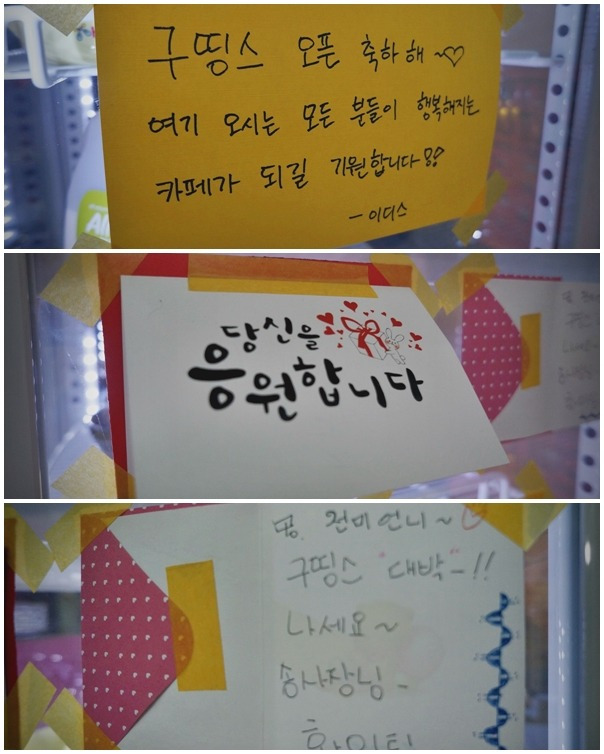 구띵스 오픈 축하해~♡
여기 오시는 모든 분들이 행복해지는
카페가 되길 기원합니다
- 이디스
당신을
응원합니다
언니~
구띵스 "대박-!!
나세요~
송사장님-
화이팅